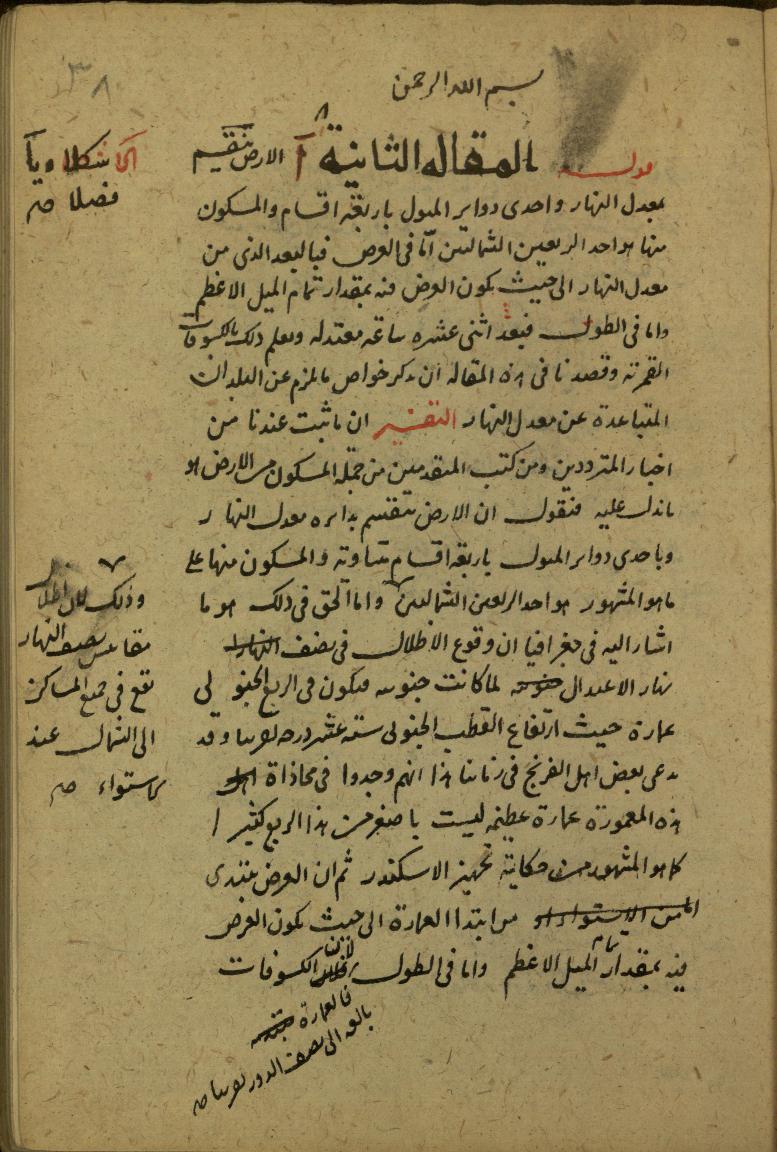 ٣٨
بسم الله الرحمن
قوله المقاله الثانية آ الارض تنقسم
بمعدل النهار واحدى دواير الميول باربعة اقسام والمسكون
منها هو احد الربعين الشماليين اما فى العرض فبالبعد الذى من
معدل النهار الى حيث يكون العرض فيه بمقدار تمام الميل الاعظم
واما فى الطول فبعد اثنى عشره ساعة معتدله ويعلم ذلك بالكسوفات
القمرية وقصدنا فى هذه المقاله ان نذكر خواص ما يلزم عن البلدان
المتباعدة عن معدل النهار التفسير ان ما ثبت عندنا من
اخبار المترددين ومن كتب المتقدمين من جملة المسكون من الارض هو
ما ندل عليه فنقول ان الارض تنقسم بدايره معدل النهار
وباحدى دواير الميول باربعة اقسام متساوية والمسكون منها على
ما هو المشهور هو احد الربعين الشماليين واما الحق فى ذلك هو ما
اشار اليه فى جغرافيا ان وقوع الاظلال فى نصف النهار
نهار الاعتدال جنوبيه لما كانت جنوبيه فيكون فى الربع الجنوبى
عمارة حيث ارتفاع القطب الجنوبى سته عشر درجه تقريبا وقد
يدعى بعض اهل الفرنج فى زماننا هذا انهم وجدوا فى محاذاة
هذه المعمورة عمارة عظيمه ليست باصغر من هذا الربع كثيرا
كما هو المشهور من حكاية تجهيز الاسكندر ثم ان العرض يبتدى
من الاستواء من ابتدا العمارة الى حيث يكون العرض
فيه بمقدار تمام الميل الاعظم واما فى الطول لان الكسوفات
فالعمارة
بالغه الى نصف الدور تقريبا صح
شكلا ويا
فصلا صح
وذلك لان اظلال
مقاييس نصف النهار
تقع فى جميع المساكن
الى الشمال عند
الاستواء صح